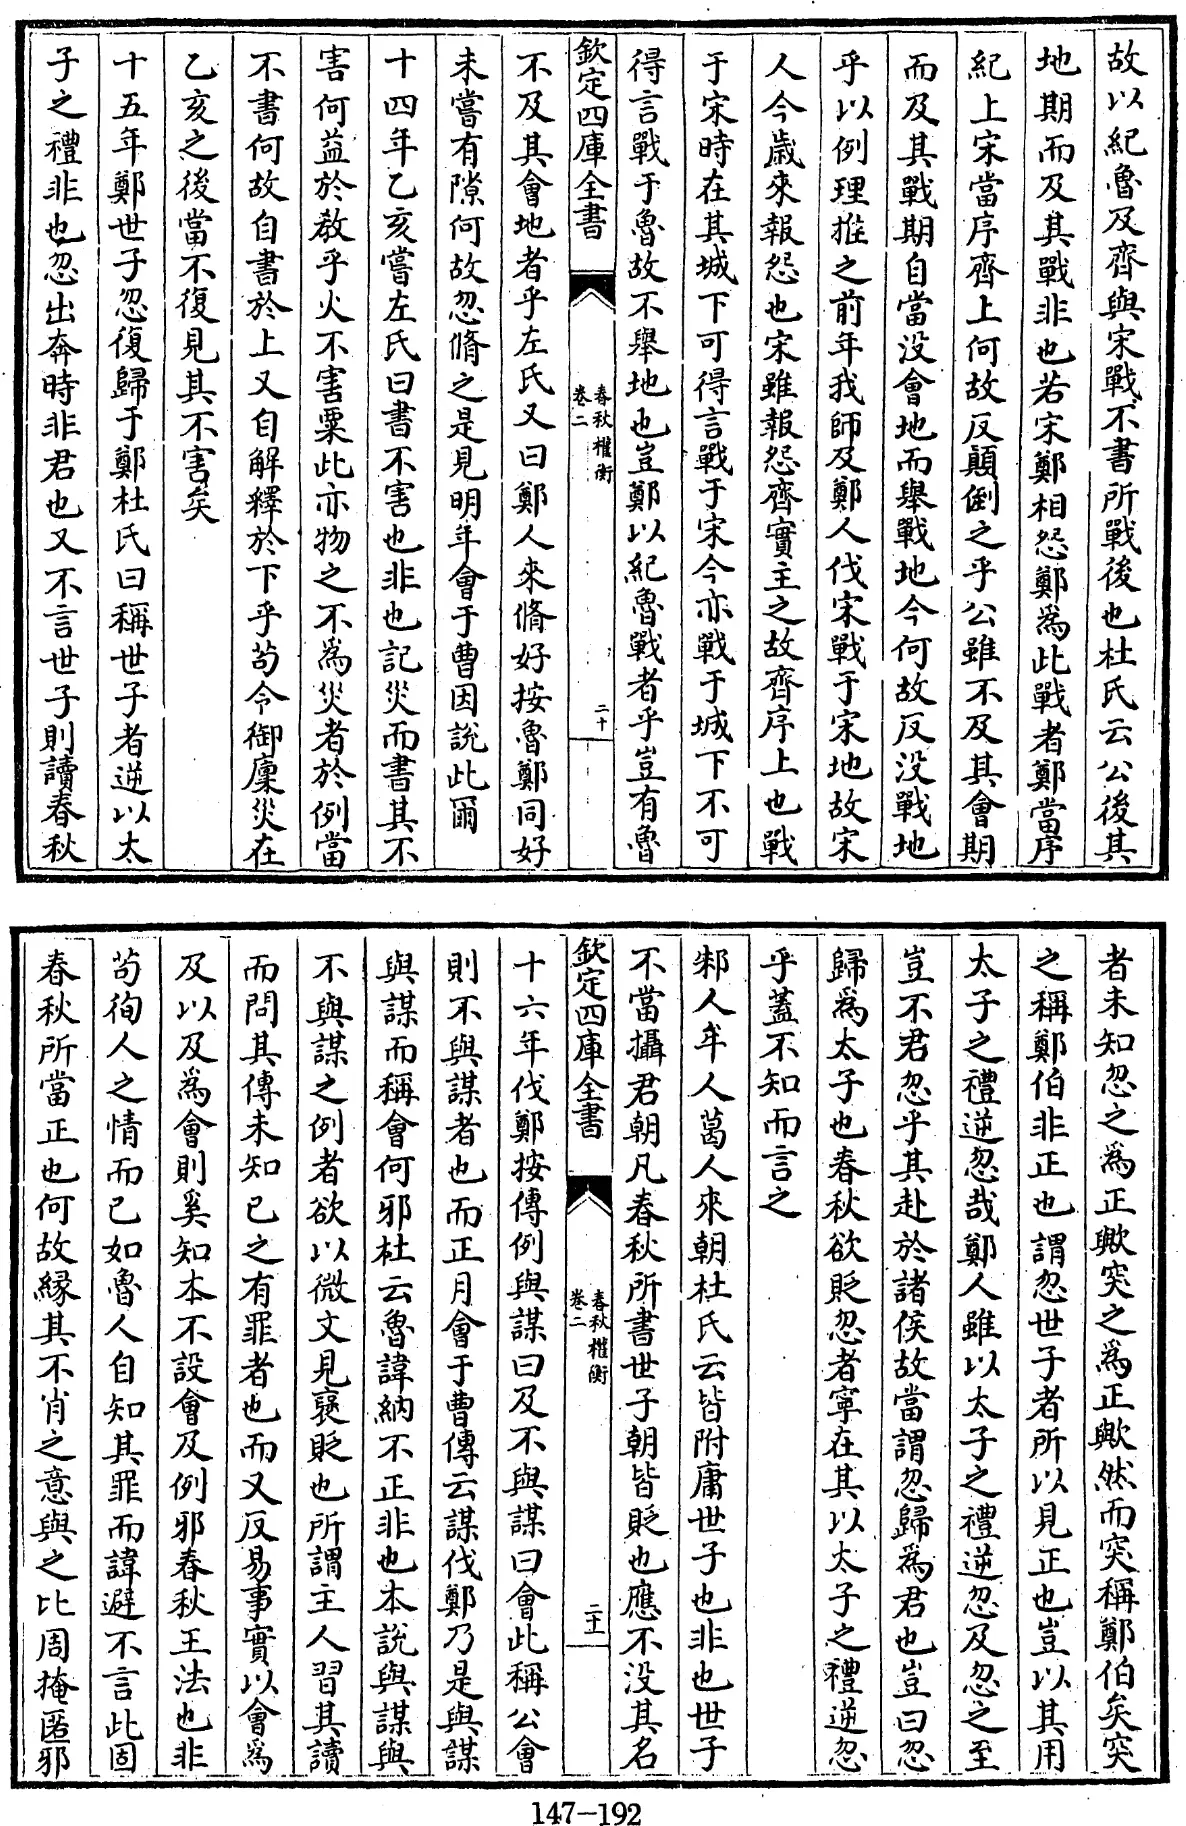 故以紀魯及齊與宋戰不書所戰後也杜氏云公後其
地期而及其戰非也若宋鄭相怨鄭為此戰者鄭當序
紀上宋當序齊上何故反顛倒之乎公雖不及其會期
而及其戰期自當没會地而舉戰地今何故反没戰地
乎以例理推之前年我師及鄭人伐宋戰于宋地故宋
人今歳來報怨也宋雖報怨齊實主之故齊序上也戰
于宋時在其城下可得言戰于宋今亦戰于城下不可
得言戰于魯故不舉地也豈鄭以紀魯戰者乎豈有魯
欽定四庫全書
春秋權衡
卷二
二十
不及其會地者乎左氏又曰鄭人來脩好按魯鄭同好
未嘗有隙何故忽脩之是見明年會于曹因説此爾
十四年乙亥嘗左氏曰書不害也非也記災而書其不
害何益於教乎火不害粟此亦物之不為災者於例當
不書何故自書於上又自解釋於下乎苟令御廩災在
乙亥之後當不復見其不害矣
十五年鄭世子忽復歸于鄭杜氏曰稱世子者逆以太
子之禮非也忽出奔時非君也又不言世子則讀春秋
者未知忽之為正歟突之為正歟然而突稱鄭伯矣突
之稱鄭伯非正也謂忽世子者所以見正也豈以其用
太子之禮逆忽哉鄭人雖以太子之禮逆忽及忽之至
豈不君忽乎其赴於諸侯故當謂忽歸為君也豈曰忽
歸為太子也春秋欲貶忽者寧在其以太子之禮逆忽
乎蓋不知而言之
邾人牟人葛人來朝杜氏云皆附庸世子也非也世子
不當攝君朝凡春秋所書世子朝皆貶也應不没其名
欽定四庫全書
春秋權衡
卷二
二十一
十六年伐鄭按傳例與謀曰及不與謀曰會此稱公會
則不與謀者也而正月會于曹傳云謀伐鄭乃是與謀
與謀而稱會何邪杜云魯諱納不正非也本説與謀與
不與謀之例者欲以微文見褒貶也所謂主人習其讀
而問其傳未知已之有罪者也而又反易事實以會為
及以及為會則奚知本不設會及例邪春秋王法也非
苟徇人之情而已如魯人自知其罪而諱避不言此固
春秋所當正也何故縁其不肖之意與之比周掩匿邪
147-192